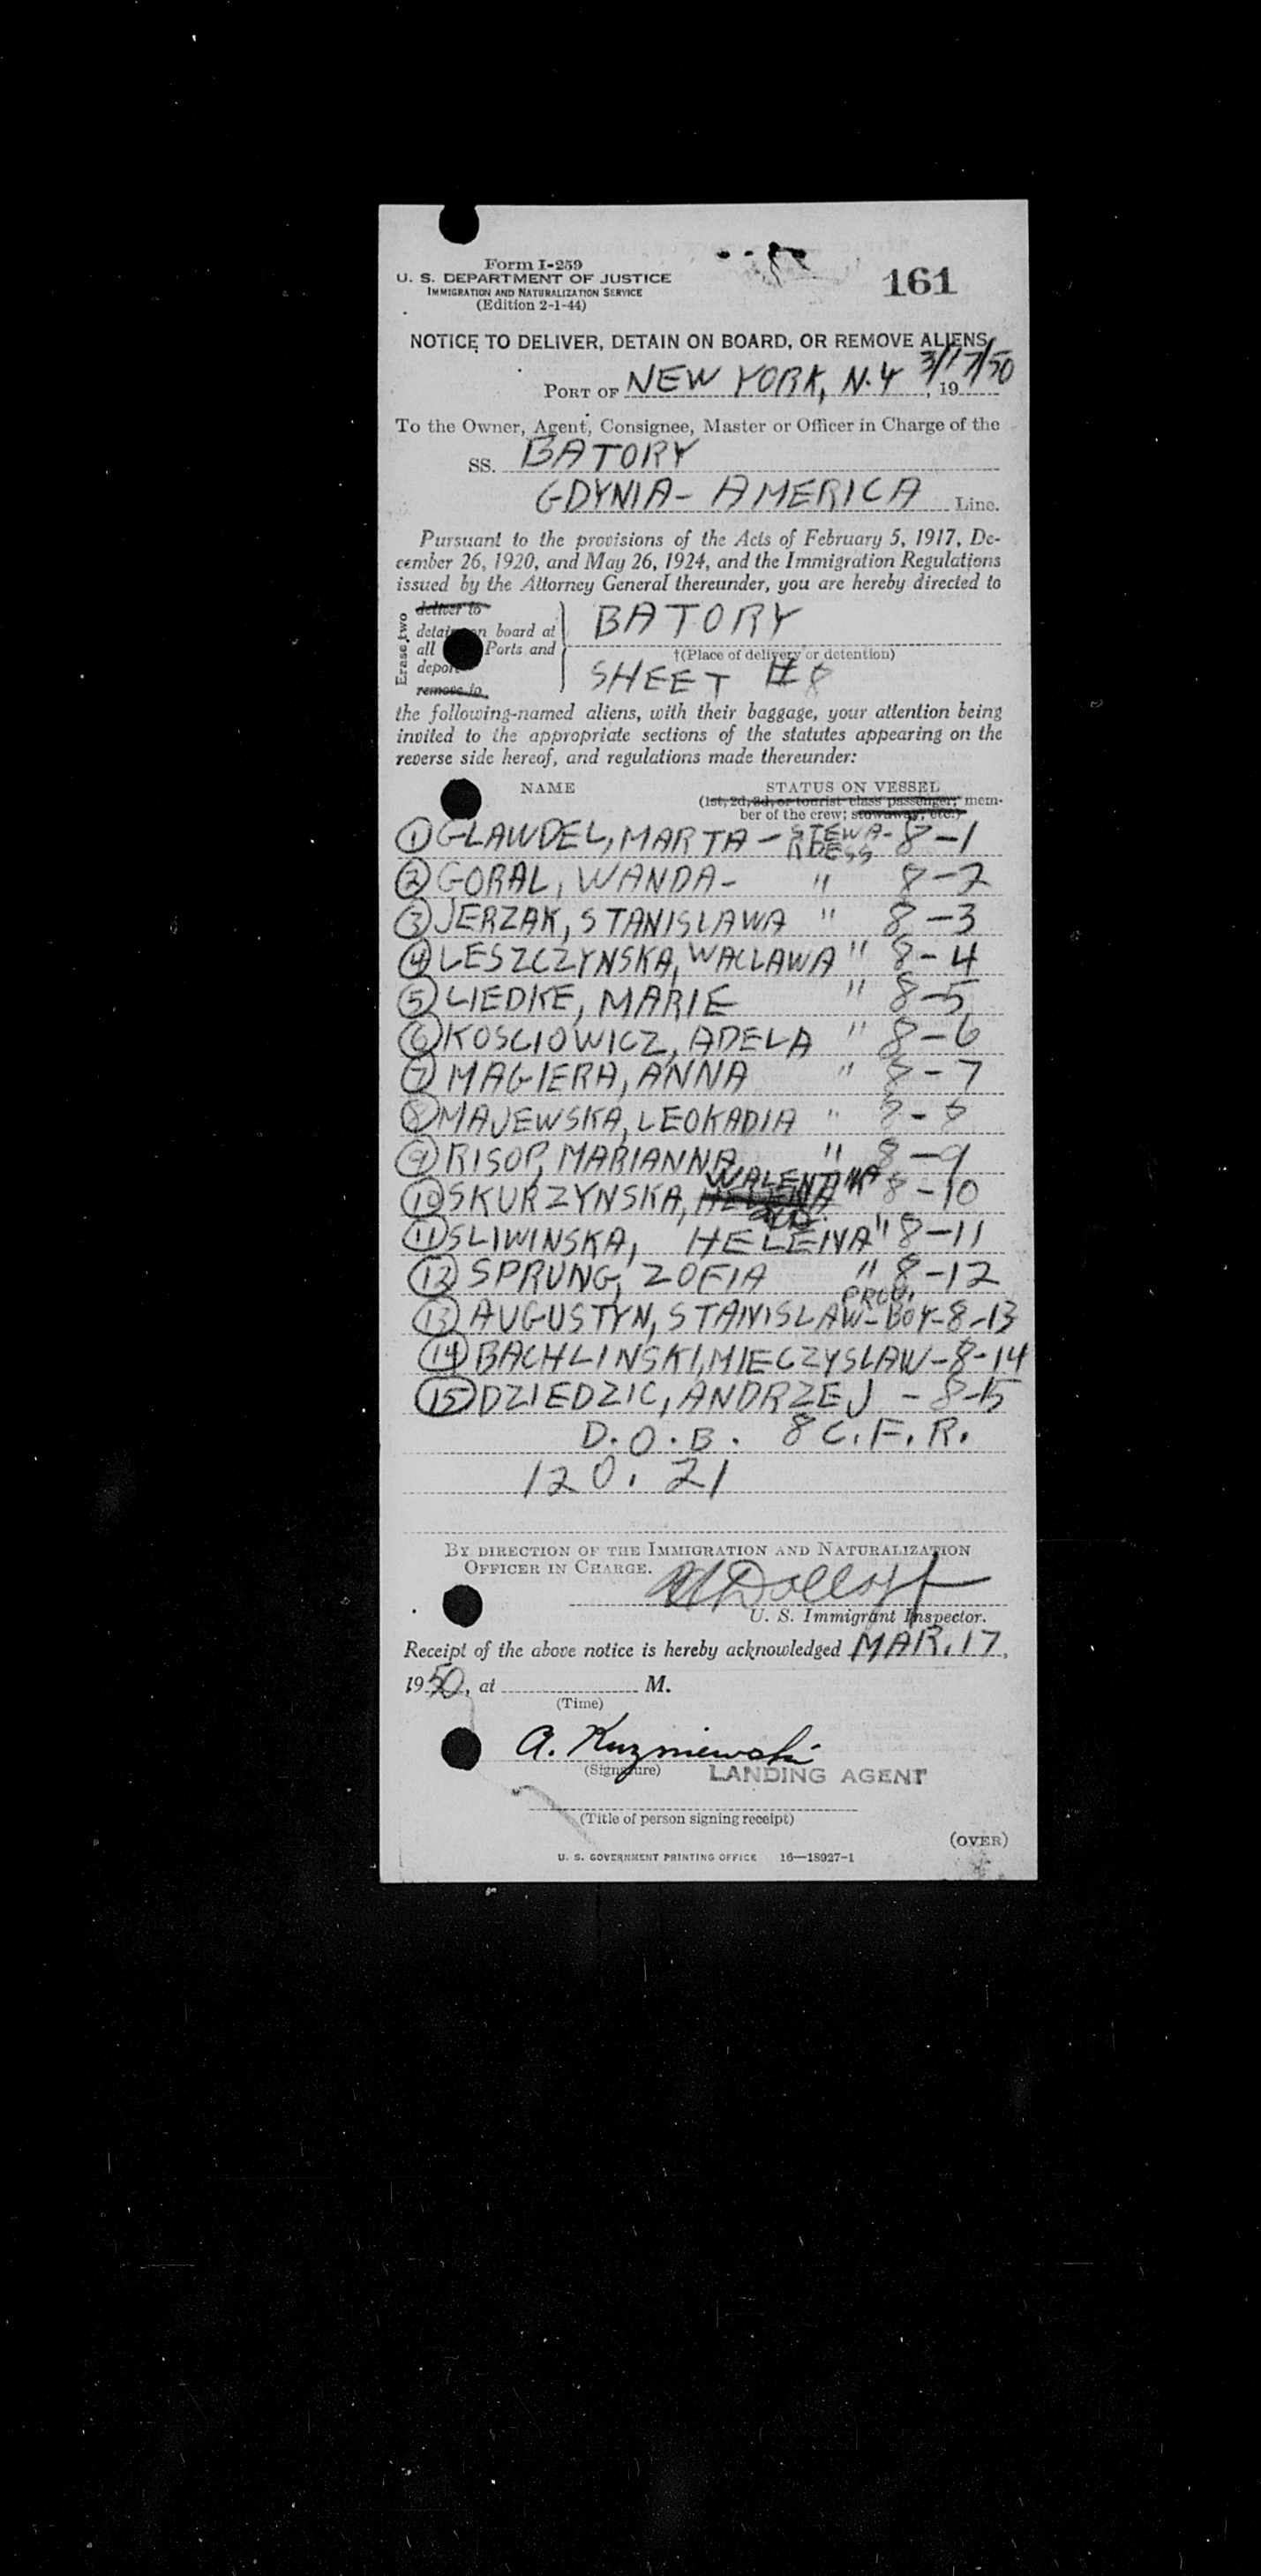 Form I-259
U. S. DEPARTMENT OF JUSTICE
IMMIGRATION AND NATURALIZATION SERVICE
(Edition 2-1-44)
161
NOTICE TO DELIVER, DETAIN ON BOARD, OR REMOVE ALIENS
PORT OF NEW YORK, N.Y 3/17/50, 19
To the Owner, Agent, Consignee, Master or Officer in Charge of the
SS. BATORY
GDYNIA-AMERICA Line.
Pursuant to the provisions of the Acts of February 5, 1917, De-
cember 26, 1920, and May 26, 1924, and the Immigration Regulations
issued by the Attorney General thereunder, you are hereby directed to
Erase two
deliver to
detain on board at
all Ports and
deport
remove to
BATORY
†(Place of delivery or detention)
SHEET #8
the following-named aliens, with their baggage, your attention being
invited to the appropriate sections of the statutes appearing on the
reverse side hereof, and regulations made thereunder:
NAME STATUS ON VESSEL
(1st, 2d, 3d, or tourist class passenger; mem-
ber of the crew; stowaway, etc.)
1 GLAWDEL, MARTA - STEWA-RDESS 8-1
2 GORAL, WANDA - " 8-2
3 JERZAK, STANISLAWA " 8-3
4 LESZCZYNSKA, WACLAWA " 8-4
5 LIEDKE, MARIE " 8-5
6 KOSCIOWICZ, ADELA " 8-6
7 MAGIERA, ANNA " 8-7
8 MAJEWSKA, LEOKADIA " 8-8
9 RISOP, MARIANNA " 8-9
10 SKURZYNSKA, HELENA WALENTINA " 8-10
11 SLIWINSKA, HELENA " 8-11
12 SPRUNG, ZOFIA " 8-12
13 AUGUSTYN, STANISLAW - PROV. BOY - 8-13
14 BACHLINSKI, MIECZYSLAW - 8-14
15 DZIEDZIC, ANDRZEJ - 8-15
D.O.B. 8 C.F.R.
120.21
BY DIRECTION OF THE IMMIGRATION AND NATURALIZATION
OFFICER IN CHARGE.
Dolloff
U. S. Immigrant Inspector.
Receipt of the above notice is hereby acknowledged MAR. 17,
1950, at M.
(Time)
A. Kuzniewski
(Signature) LANDING AGENT
(Title of person signing receipt)
(OVER)
U. S. GOVERNMENT PRINTING OFFICE 16—18927-1